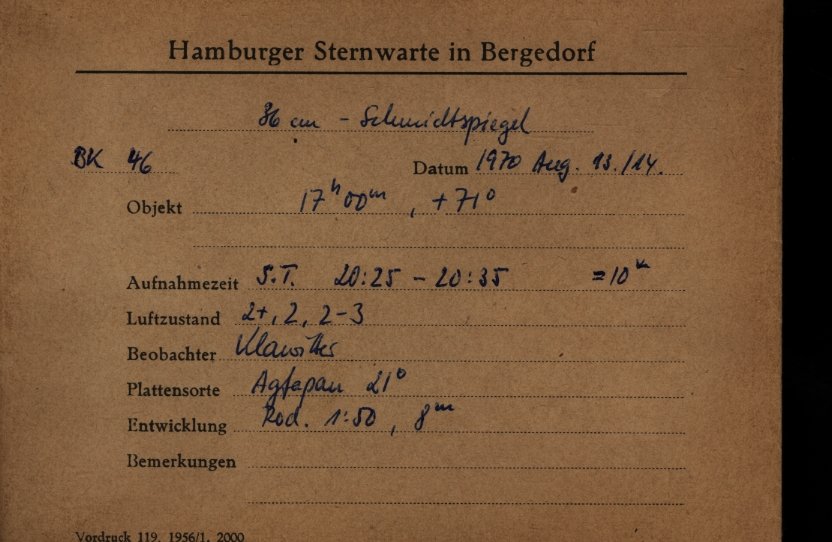 Hamburger Sternwarte in Bergedorf
36 cm - Schmidtspiegel
BK 46 Datum 1970 Aug. 13./14.
Objekt 17ʰ00ᵐ, +71°
Aufnahmezeit S.T. 20:25 - 20:35 = 10ᵐ
Luftzustand 2+, 2, 2-3
Beobachter Klawitter
Plattensorte Agfapan 21°
Entwicklung Rod. 1:50, 8ᵐ
Bemerkungen
Vordruck 119. 1956/1. 2000